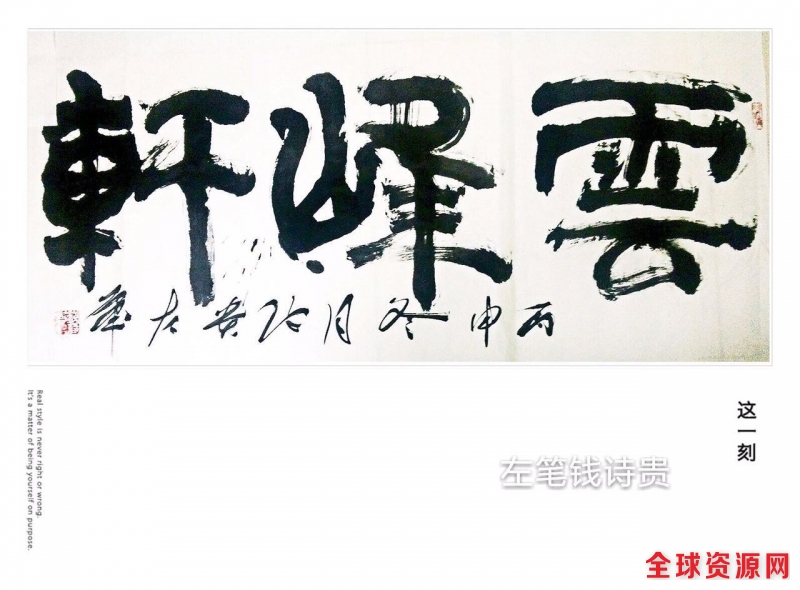 雲峰軒
丙申冬月诗贵左筆
这一刻
左笔钱诗贵
Real style is never right or wrong.
It's a matter of being yourself on purpose.
全球资源网